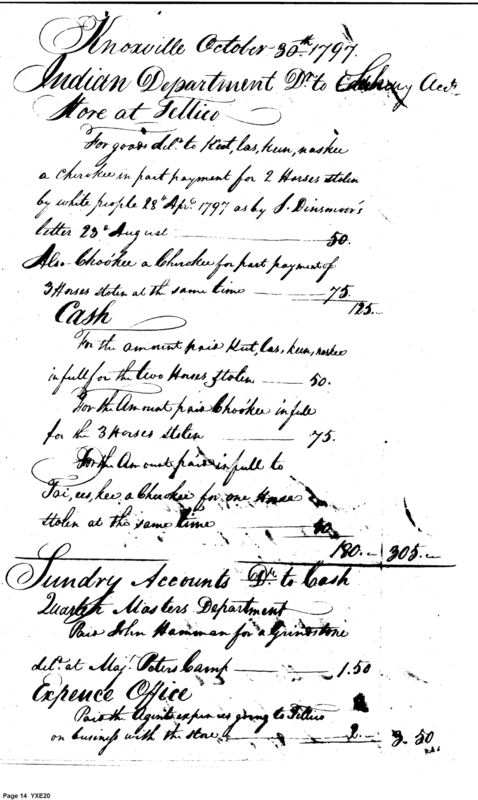 Knoxville October 30th 1797.
Indian Department Dr. to Sundry Accts.
Store at Tellico
For goods deld. to Keet, las, keen, naskee
a Cherokee in part payment for 2 Horses stolen
by white people 28th Apr. 1797 as by S. Dinsmoor's
letter 23d August 50.
Also Chookee a Cherokee for part payment of
3 Horses stolen at the same time 75.
125.
Cash
For the amount paid Keet, las, keen, naskee
in full for the two Horses stolen 50.
For the Amount paid Chookee in full
for the 3 Horses stolen 75.
For the Amount paid in full to
Tai, ees, kee a Cherokee for one Horse
stolen at the same time
180. 305.
Sundry Accounts Dr. to Cash
Quarter Masters Department
Paid John Hamman for a Grindstone
deld. at Maj. Peters Camp 1.50
Expence Office
Paid the Agents expences going to Tellico
on business with the store 2. 3.50
Page 14 YXE20